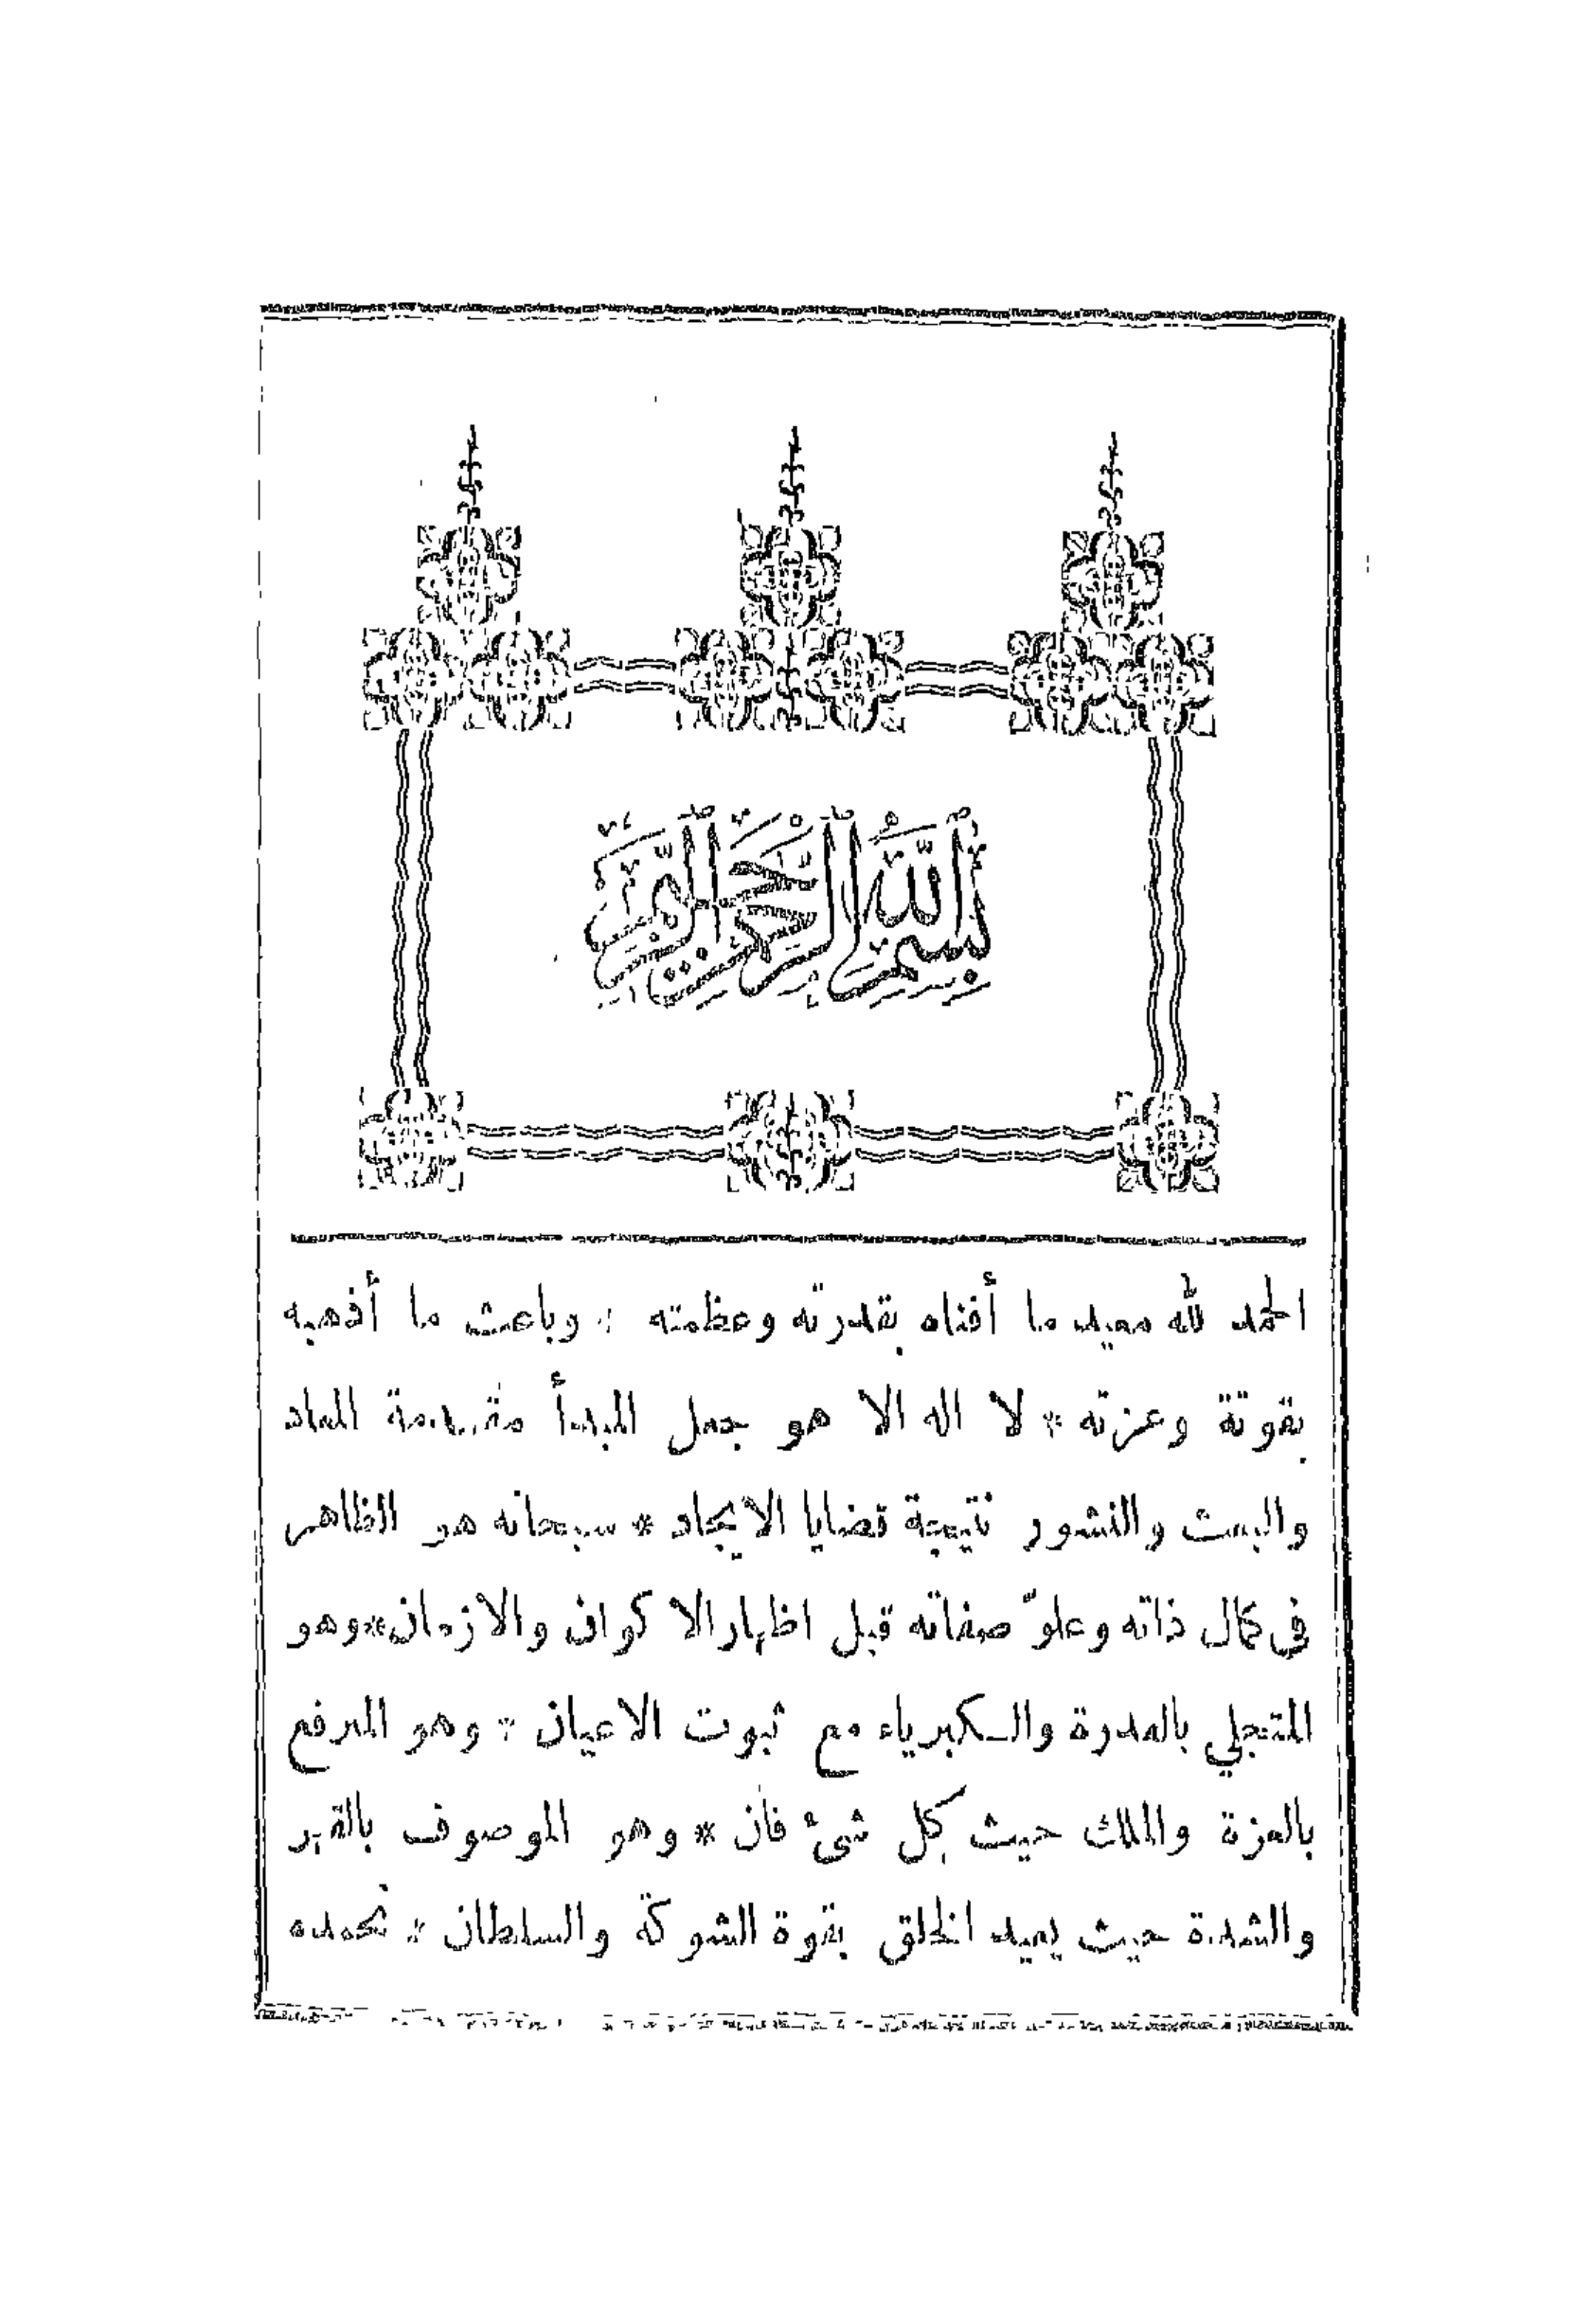 بسم الله الرحمن الرحيم
الحمد لله معيد ما أفناه بقدرته وعظمته * وباعث ما أذهبه
بقوتة وعزته * لا اله الا هو جعل المبدأ مقدمة المعاد
والبعث والنشور نتيجة قضايا الايجاد * سبحانه هو الظاهر
فى كمال ذاته وعلوّ صفاته قبل اظهار الاكوان والازمان * وهو
المتجلي بالقدرة والكبرياء مع ثبوت الاعيان * وهو
بالعزة والملك حيث كل شئ فان * وهو الموصوف بالقهر
والشدة حيث يعيد الخلق بقوة الشوكة والسلطان * نحمده